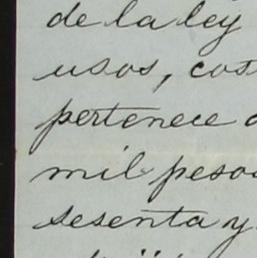 de la ley
usos, cos
pertenece
mil pesos
sesenta y